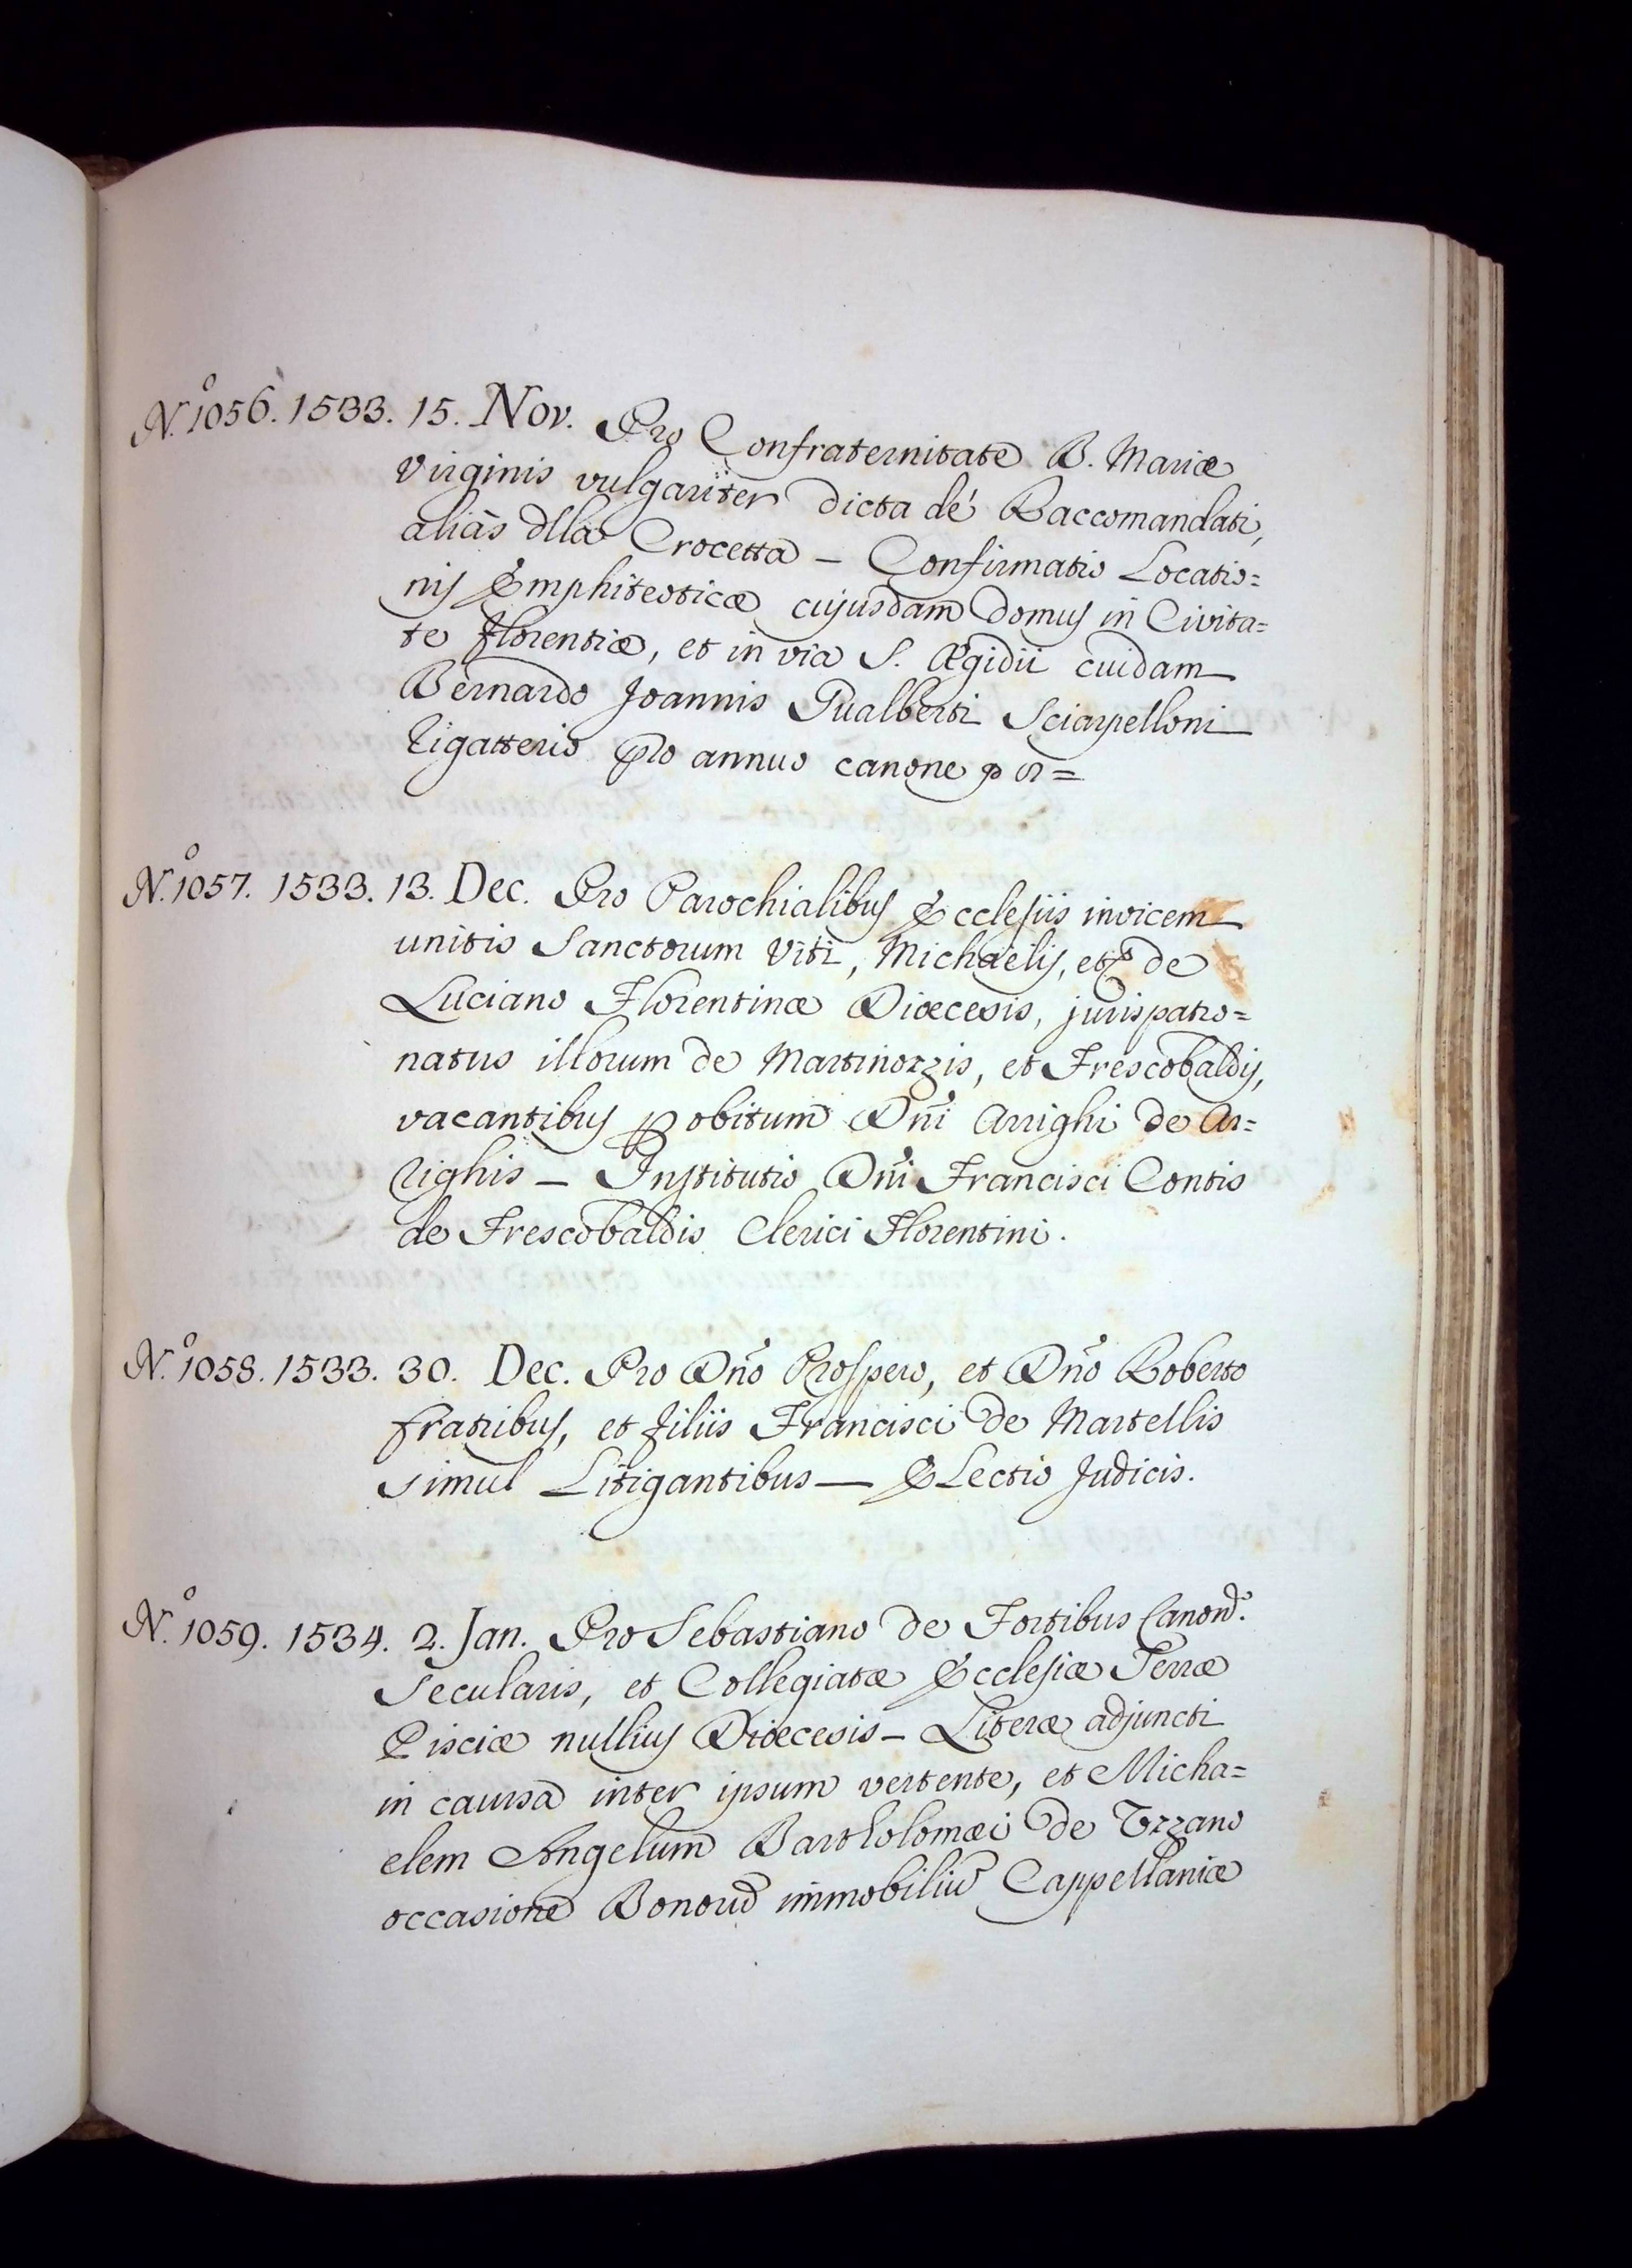 N.º 1056. 1533. 15. Nov. Pro Confraternitate B. Mariæ
Virginis vulgariter dicta de' Raccomandati,
aliàs dlla Crocetta – Confirmatio Locatio=
nis Emphiteoticæ cujusdam Domus in Civita=
te Florentiæ, et in via S. Ægidii cuidam
Bernardo Joannis Gualberti Sciarpelloni
Rigatterio pro annuo canone
N.º 1057. 1533. 13. Dec. Pro Parochialibus Ecclesiis invicem
unitis Sanctorum Viti, Michaelis, et de
Luciano Florentinæ Diœcesis, jurispatro=
natus illorum de Martinozzis, et Frescobaldis,
vacantibus p obitum Dñi Arrighi de Ar=
righis – Institutio Dñi Francisci Contis
de Frescobaldis Clerici Florentini.
N.º 1058. 1533. 30. Dec. Pro Dño Prospero, et Dño Roberto
fratribus, et filiis Francisci de Martellis
simul Litigantibus – Electio Judicis.
N.º 1059. 1534. 2. Jan. Pro Sebastiano de Fortibus Canon.
Secularis, et Collegiatæ Ecclesiæ Terræ
Pisciæ nullius Diœcesis – Literæ adjuncti
in caussa inter ipsum vertente, et Micha=
elem Angelum Bartholomæi de Uzzano
occasione Bonoru immobiliū Cappellaniæ